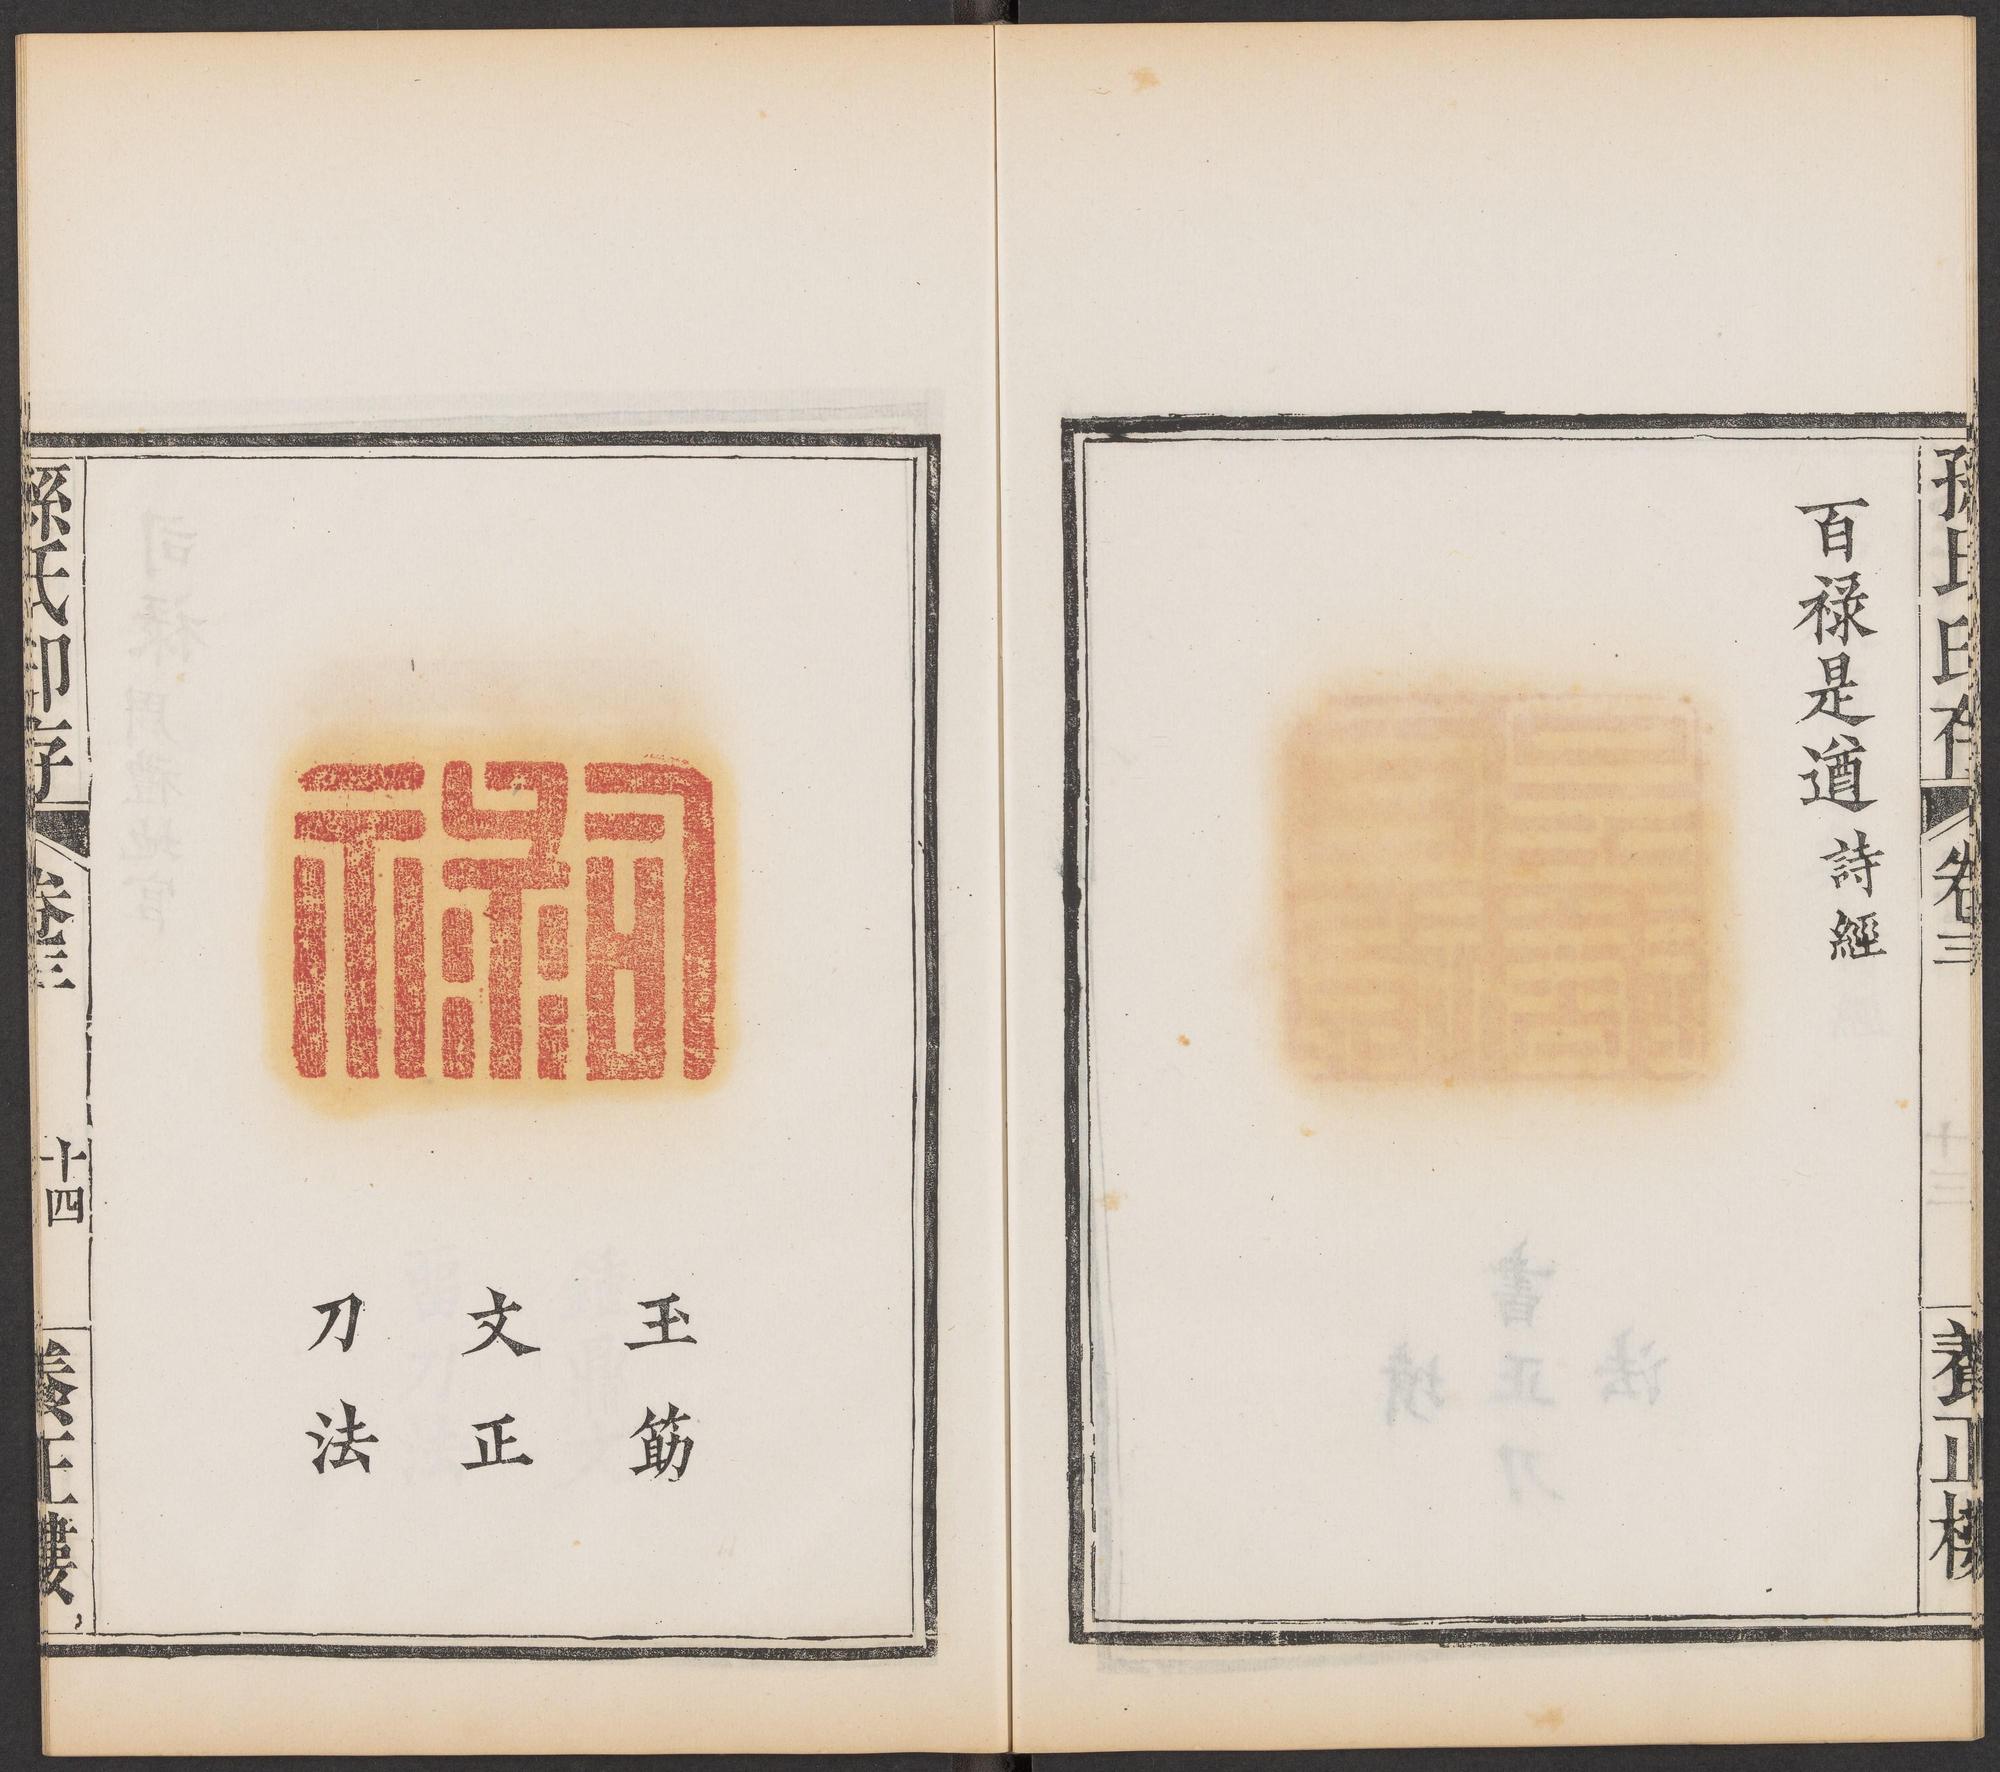 孫氏印存
卷三
養正樓
百祿是遒 詩經
司祿
玉筯
文正
刀法
孫氏印存
卷三
十四
養正樓